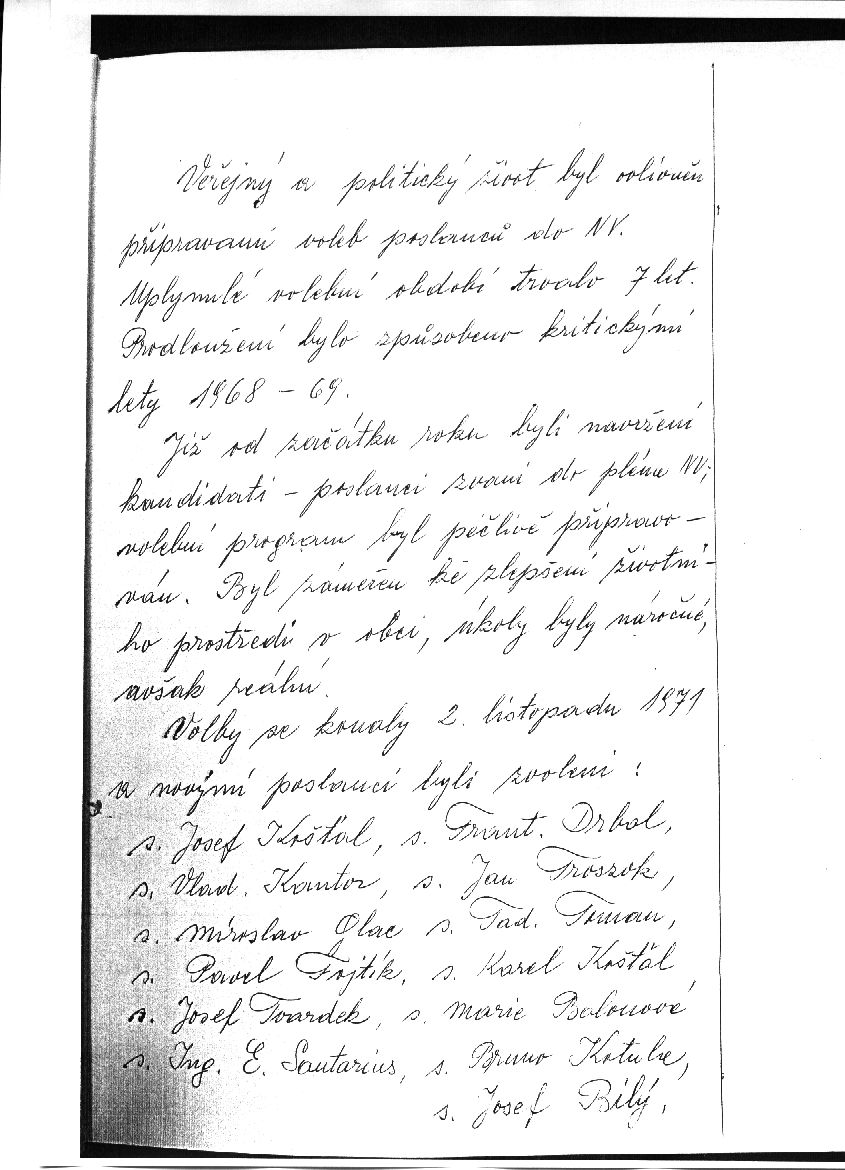 Veřejný a politický život byl ovlivněn
přípravami voleb poslanců do NV.
Uplynulé volební období trvalo 7 let.
Prodloužení bylo způsobeno kritickými
lety 1968 – 69.
Již od začátku roku byli navrženi
kandidáti – poslanci zvaní do pléna NV;
volební program byl pečlivě připravo –
ván. Byl záměřen ke zlepšení životní –
ho prostředí v obci, úkoly byly náročné,
avšak reální.
Volby se konaly 2. listopadu 1971
a novými poslanci byli zvoleni :
s. Josef Košťál, s. Frant. Drbal,
s. Vlad. Kantor, s. Jan Troszok,
s. Miroslav Glac s. Tad. Toman,
s. Pavel Fojtík, s. Karel Košťál
s. Josef Tvardek, s. Marie Balonové
s. Ing. E. Santarius, s. Bruno Kotula,
s. Josef Bílý,